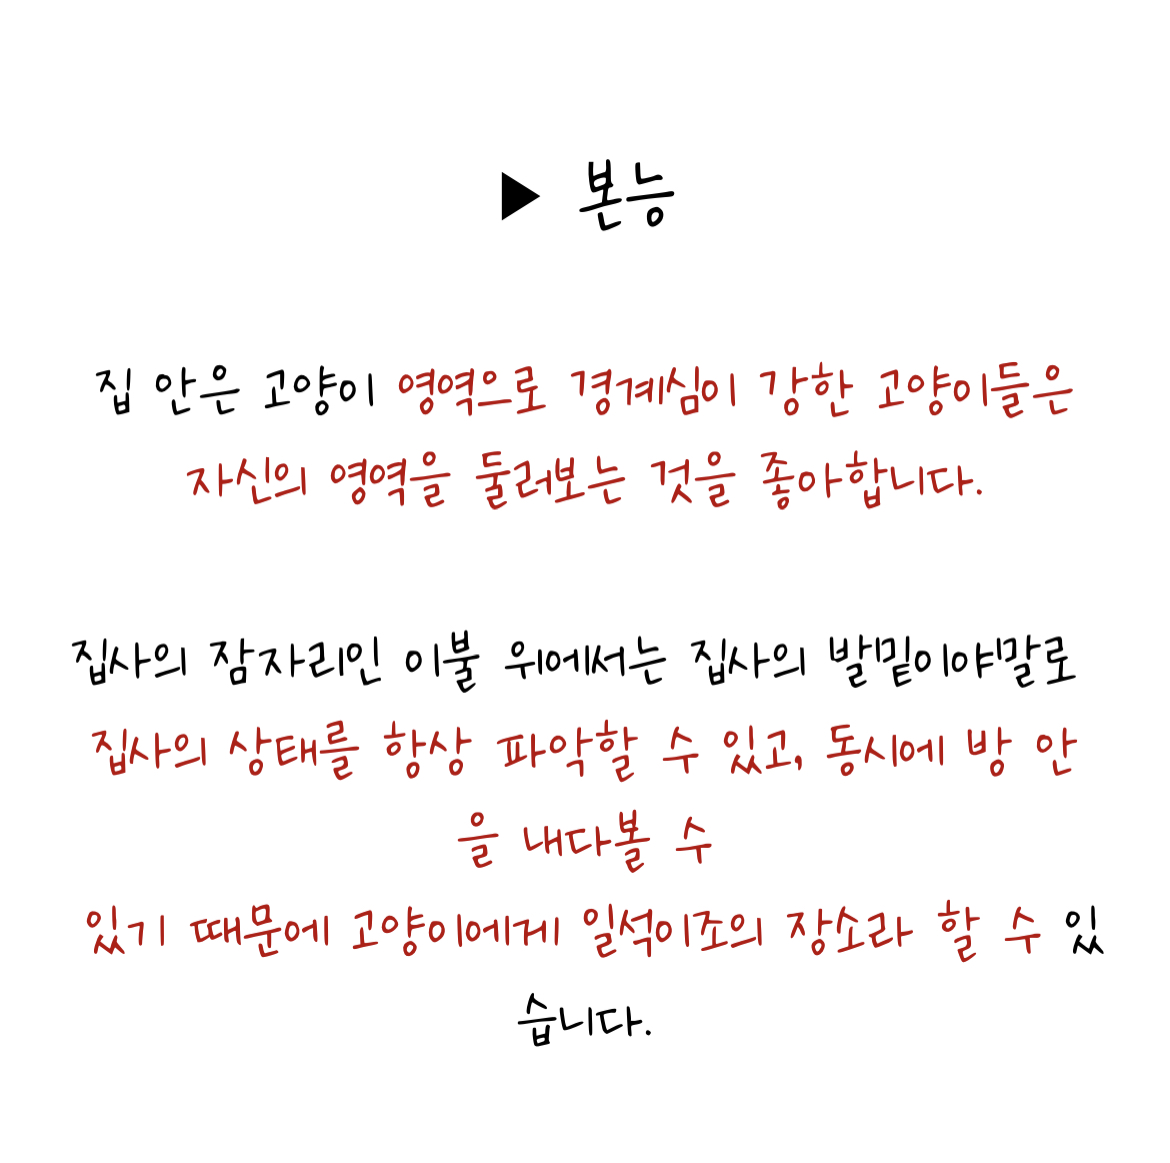 ▶ 본능
집 안은 고양이 영역으로 경계심이 강한 고양이들은
자신의 영역을 둘러보는 것을 좋아합니다.
집사의 잠자리인 이불 위에서는 집사의 발밑이야말로
집사의 상태를 항상 파악할 수 있고, 동시에 방 안
을 내다볼 수
있기 때문에 고양이에게 일석이조의 장소라 할 수 있
습니다.